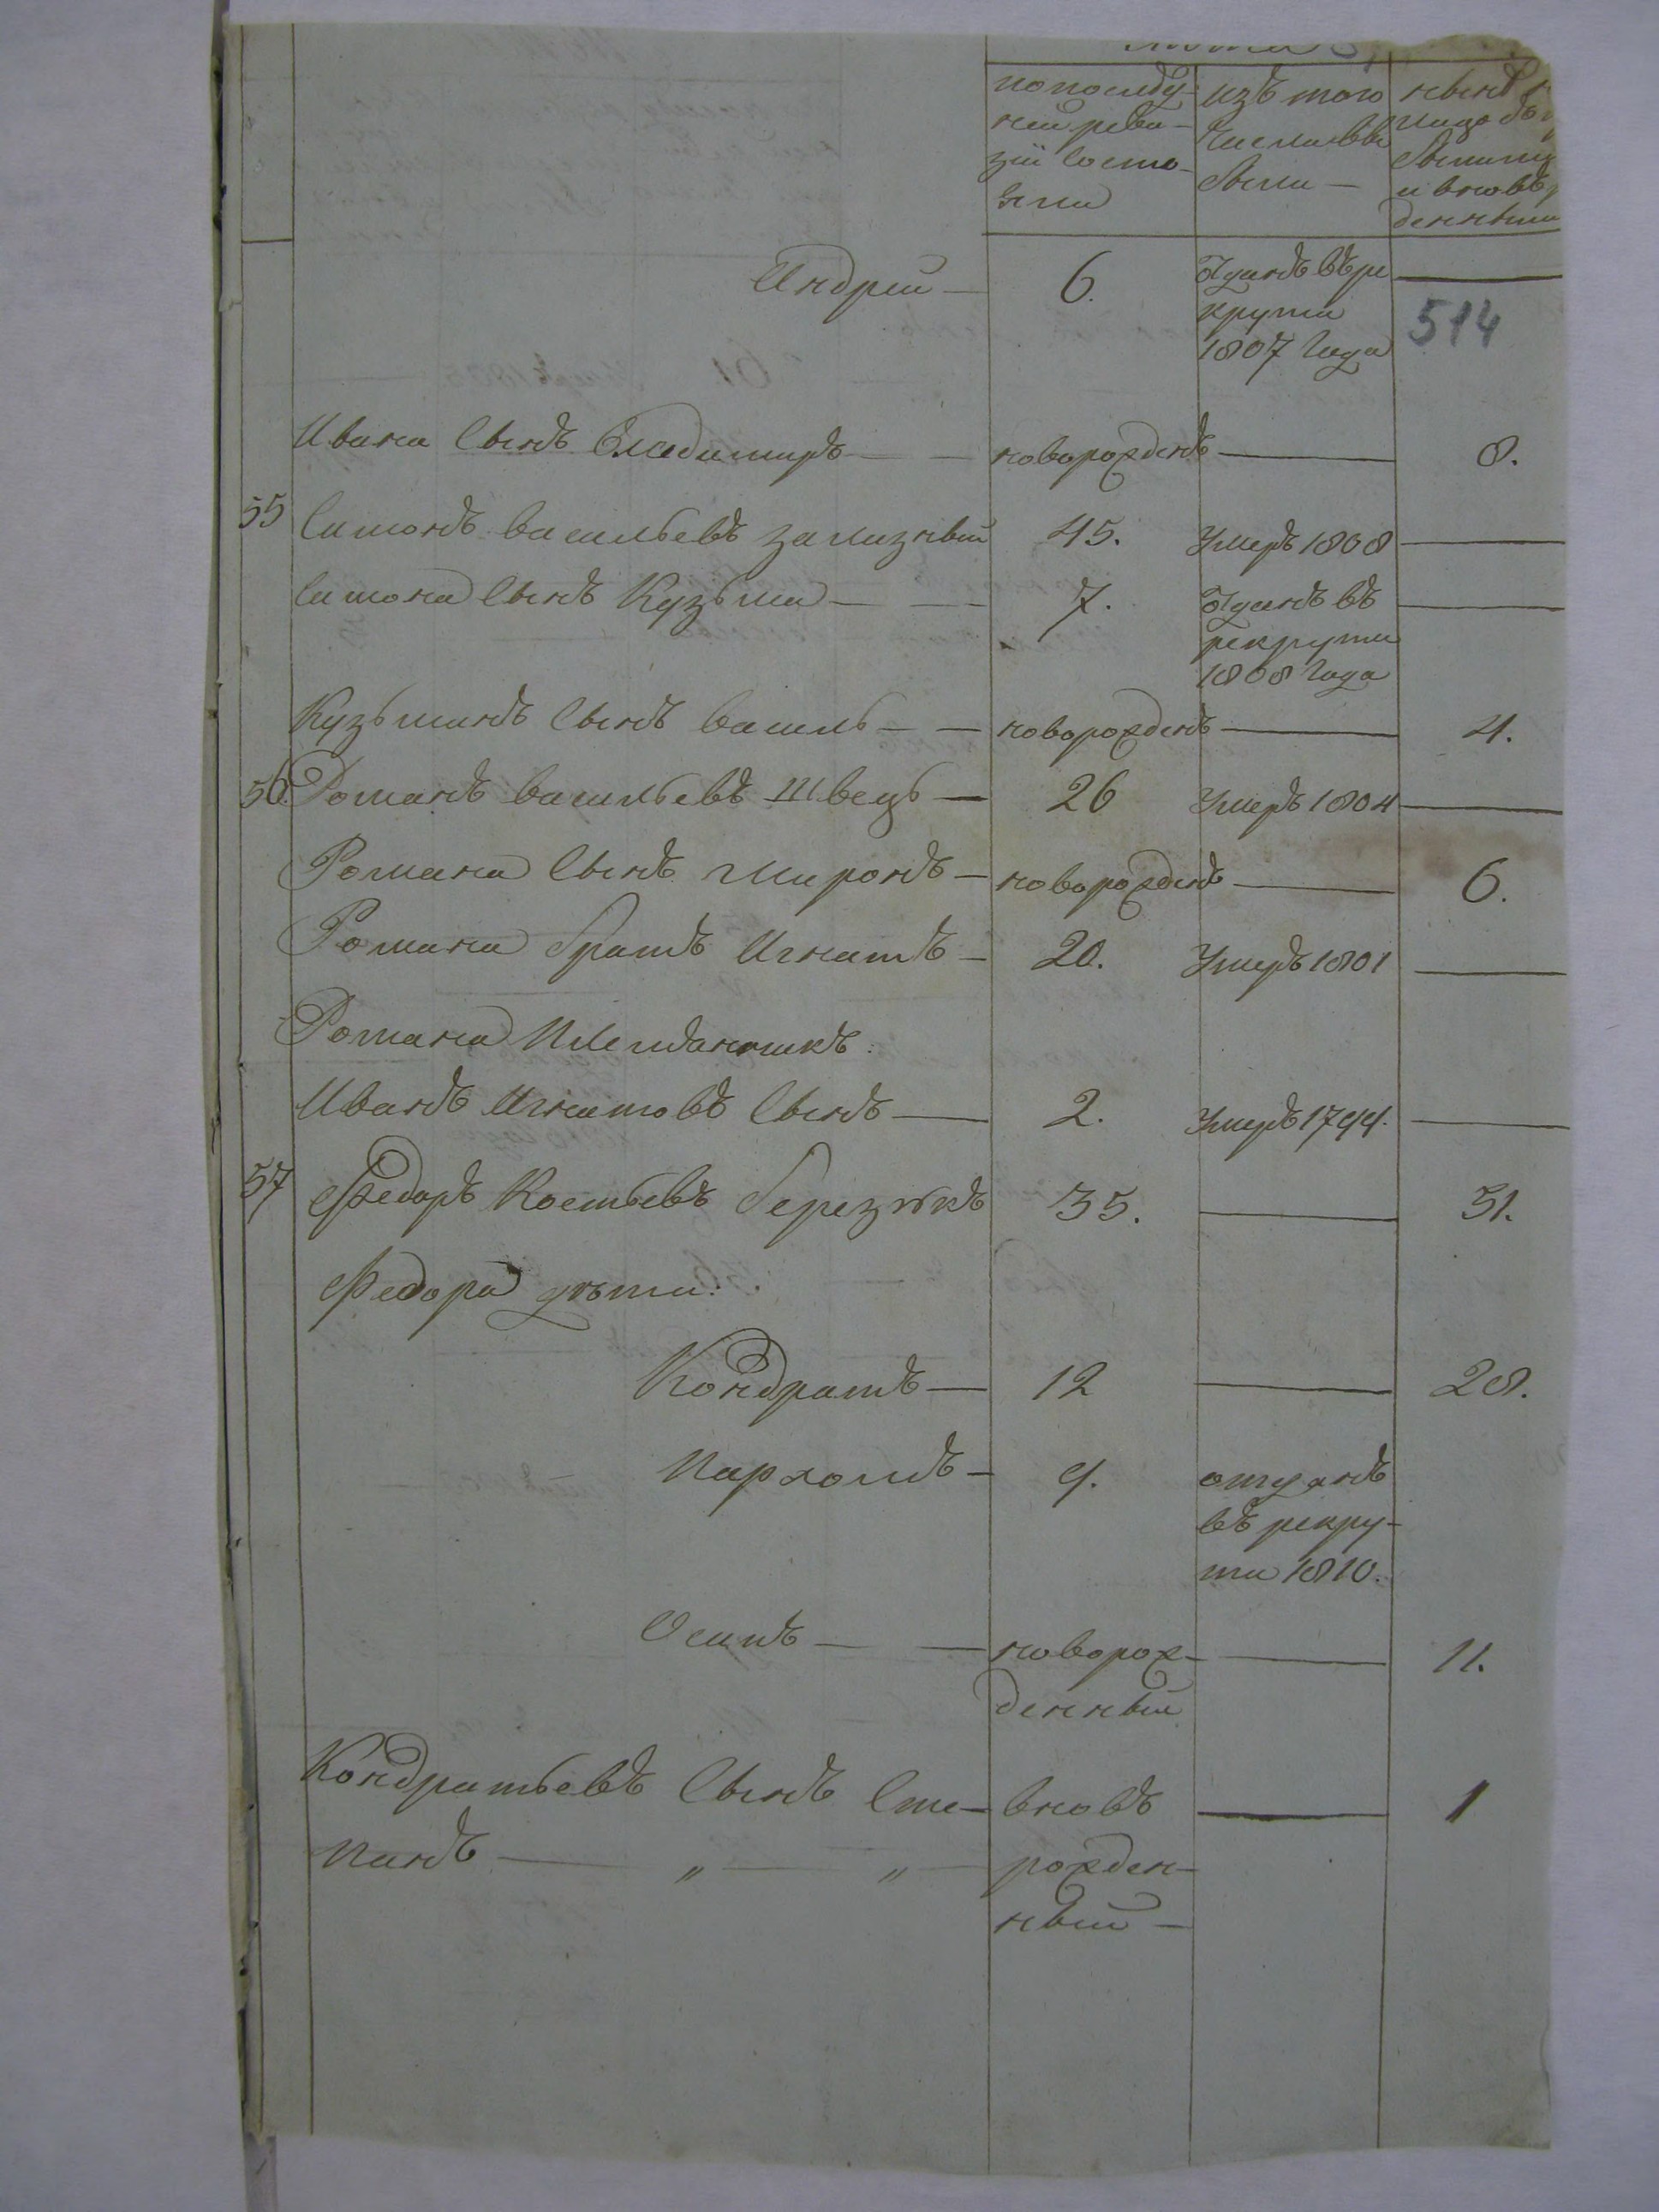 по последу- изъ того нынѣ
ней реви- числа вы
зіи состо- были —
яли
и вновь
денныхъ
Андрей — 6. Отданъ въ ре ——
крути 514
1807 года
Ивана сынъ Владимиръ — — новорожденъ —— 8.
55 Самонъ васильевъ зализный 45. Умеръ 1808 ——
Самона сынъ Кузьма — — 7. Отданъ въ ——
рекрути
1808 года
Кузьминъ сынъ василь — — новорожденъ —— 4.
56. Романъ васильевъ Швець — 26 Умеръ 1804 ——
Романа сынъ Миронъ — новорожденъ —— 6.
Романа братъ Игнатъ — 20. Умеръ 1801 ——
Романа Племеникъ:
Иванъ Игнатовъ сынъ —— 2. Умеръ 1799. ——
57 Федоръ Костьевъ березюкъ 35. —— 51.
Федора дѣти:
Кондратъ — 12 —— 28.
Пархомъ — 9. отданъ
въ рекру-
ти 1810.
Осипъ — — новорож- —— 11.
денный
Кондратьевъ сынъ Сте- вновь —— 1
панъ — „ — „ — рожден-
ный —